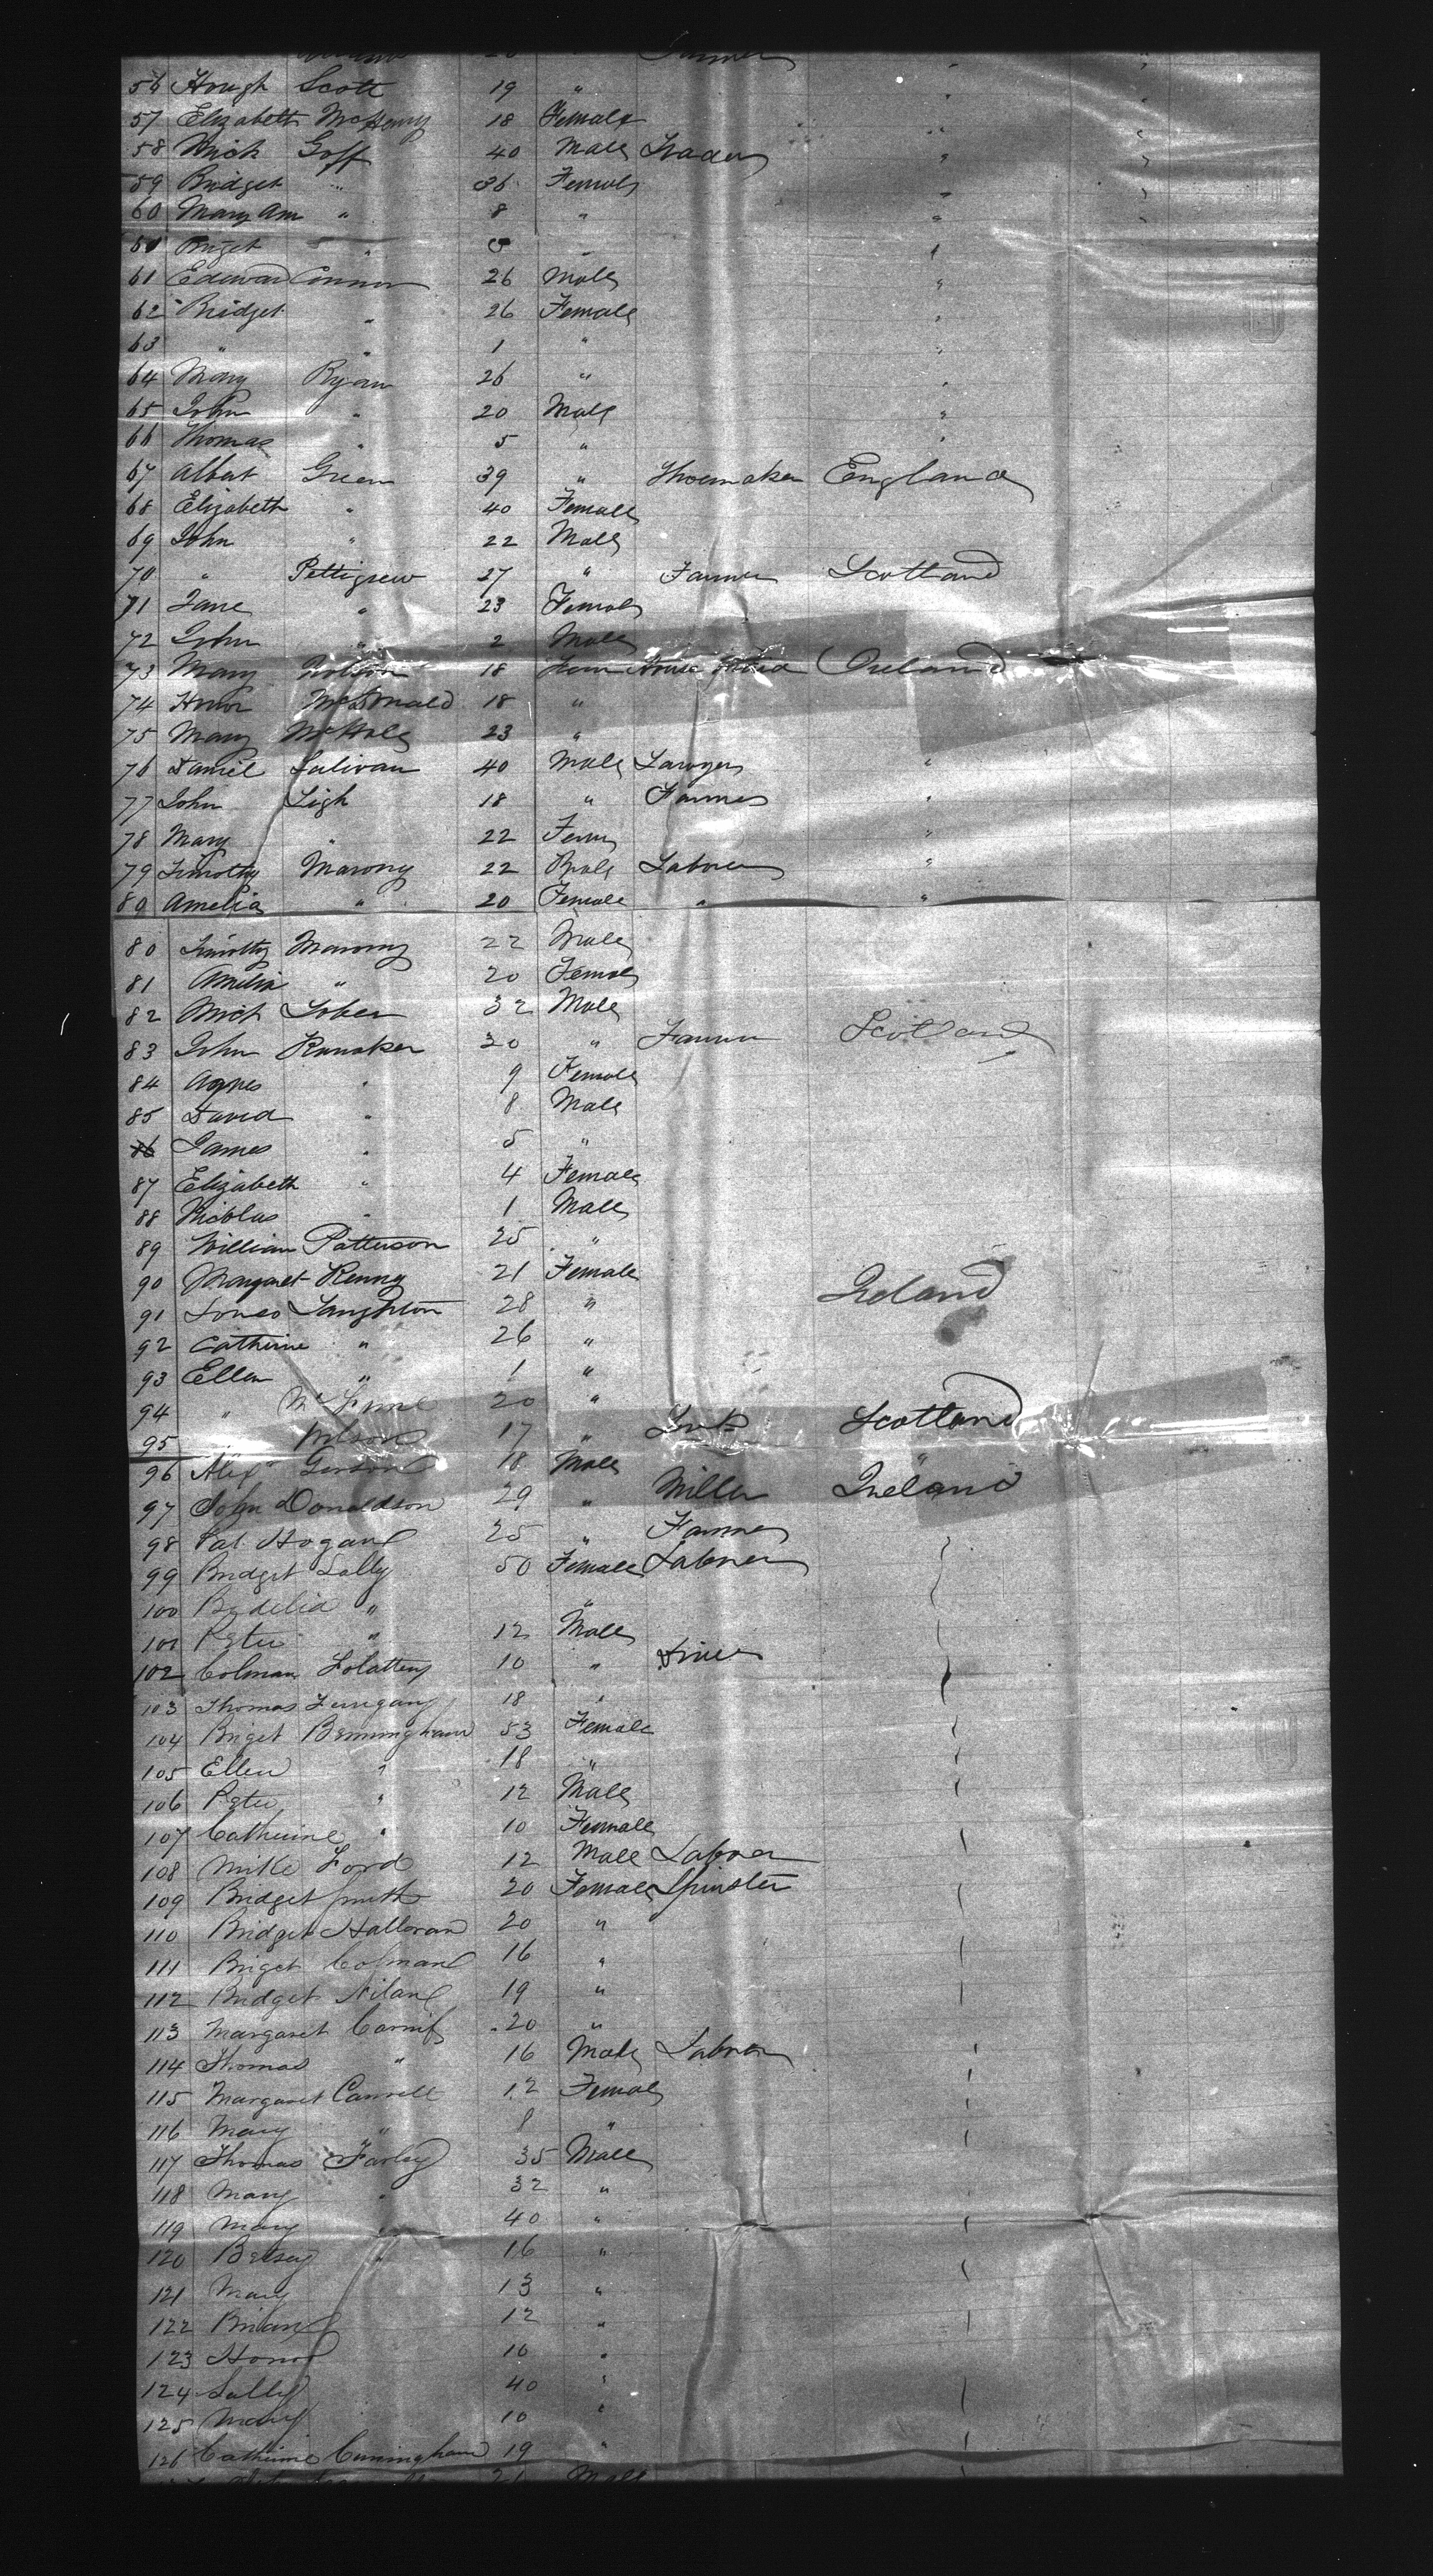 56 Hough Scott 19 "
57 Elizabeth McHenry 18 Female
58 Mick Goff 40 Male "
59 Bridget " 36 Female
60 Mary Ann " 8 " "
60 Briget " "
61 Edward Connor 26 Male "
62 Bridget " 26 Female "
63 " " 1 " "
64 Mary Ryan 26 " "
65 John " 20 Male "
66 Thomas " 5 " "
67 Albert Green 39 " Shoemaker England
68 Elizabeth " 40 Female
69 John " 22 Male
70 " Pettigrew 27 " Farmer Scotland
71 Jane " 23 Female
72 John " 2 Male
73 Mary 18 Fem House Ireland
74 Honor McDonald 18 "
75 Mary McHale 23 "
76 Daniel Sulivan 40 Male Lawyer "
77 John Ligh 18 " Farmer "
78 Mary " 22 Fem "
79 Timothy Marony 22 Male Laborer "
80 Amelia " 20 Female " "
80 Timothy Marony 22 Male
81 Amelia " 20 Female
82 Mick Tober 32 Male
83 John Runsker 30 " Farmer Scotland
84 Agnes " 9 Female
85 David " 8 Male
86 James " 5 "
87 Elizabeth " 4 Female
88 Nicolas " 1 Male
89 William Patterson 25 "
90 Margaret Kenny 21 Female Ireland
91 Laughton 28 "
92 Catherine " 26 "
93 Ellen " 1 "
94 " 20 " Scotland
95 " Wilson 17 " "
96 Alex 18 Male Ireland
97 John Donaldson 29 " Miller
98 Pat Hogan 25 " Farmer
99 Bridget Lally 50 Female Laborer
100 Bedelia " "
101 Peter " 12 Male
102 Colman Folattery 10 "
103 Thomas 18 "
104 Briget Bermingham 53 Female
105 Ellen " 18 "
106 Peter " 12 Male
107 Catherine " 10 Female
108 Mike Ford 12 Male Laborer
109 Bridget Smith 20 Female Spinster
110 Bridget Halloran 20 "
111 Briget Colman 16 "
112 Bridget Nilan 19 "
113 Margaret 20 "
114 Thomas " 16 Male Laborer
115 Margaret Canvell 12 Female
116 Mary " 8 "
117 Thomas Farley 35 Male
118 Mary " 32 "
119 Mary " 40 "
120 Betsey " 16 "
121 Mary 13 "
122 Brian 12 "
123 Honor 10 "
124 Sally 40 "
125 Mary 10 "
126 Catherine Cunningham 19 "
21 Male